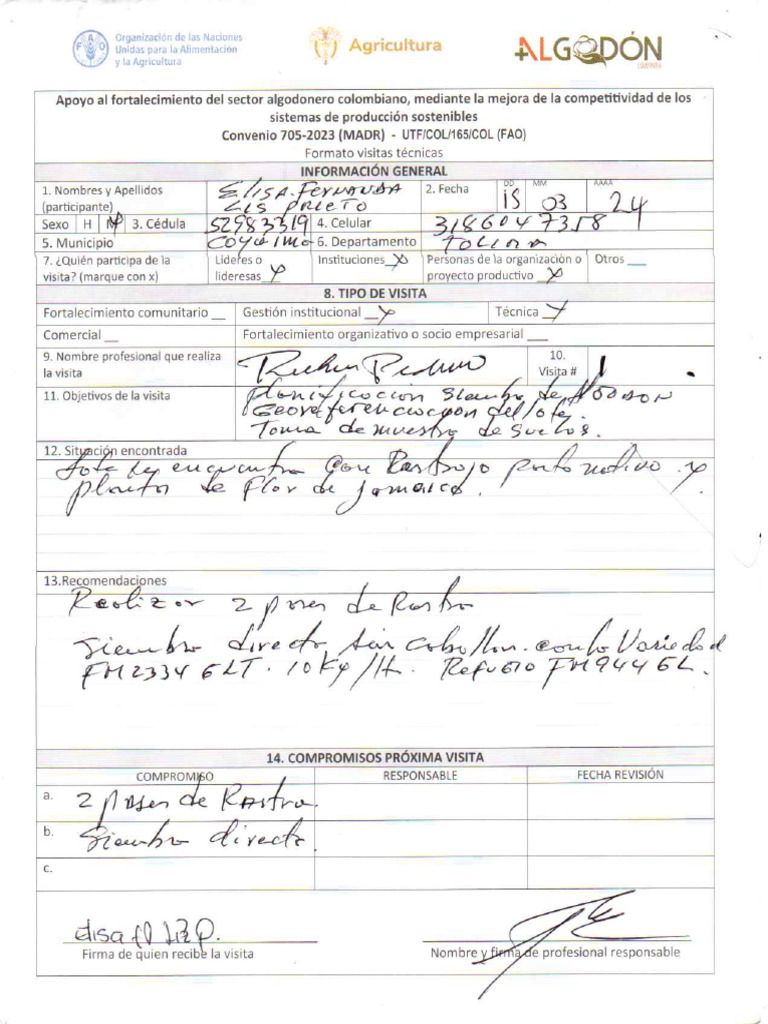 Organización de las Naciones
Unidas para la Alimentación
y la Agricultura
Agricultura
ALGODÓN
Apoyo al fortalecimiento del sector algodonero colombiano, mediante la mejora de la competitividad de los
sistemas de producción sostenibles
Convenio 705-2023 (MADR) - UTF/COL/165/COL (FAO)
Formato visitas técnicas
INFORMACIÓN GENERAL
1. Nombres y Apellidos (participante) Elisa Fernanda Lis Prieto 2. Fecha DD 15 MM 03 AAAA 24
Sexo H M 3. Cédula 52983319 4. Celular 3186047358
5. Municipio Coyaima 6. Departamento Tolima
7. ¿Quién participa de la visita? (marque con x) Lideres o lideresas x Instituciones x Personas de la organización o proyecto productivo x Otros __
8. TIPO DE VISITA
Fortalecimiento comunitario __ Gestión institucional x Técnica x
Comercial __ Fortalecimiento organizativo o socio empresarial __
9. Nombre profesional que realiza la visita 10. Visita # 1
11. Objetivos de la visita Planificación Siembra de Algodon
Georeferenciacion del lote
Toma de muestra de suelos.
12. Situación encontrada
lote se encuentra con Rastrojo y
planta de Flor de Jamaica.
13.Recomendaciones
Realizar 2 pases de Rastra
Siembra directa sin caballon. con la Variedad
FM2334 GLT. 10Kg/H. Refugio FM944 GL.
14. COMPROMISOS PRÓXIMA VISITA
COMPROMISO RESPONSABLE FECHA REVISIÓN
a. 2 pases de Rastra.
b. Siembra directa
c.
Elisa
Firma de quien recibe la visita Nombre y firma de profesional responsable